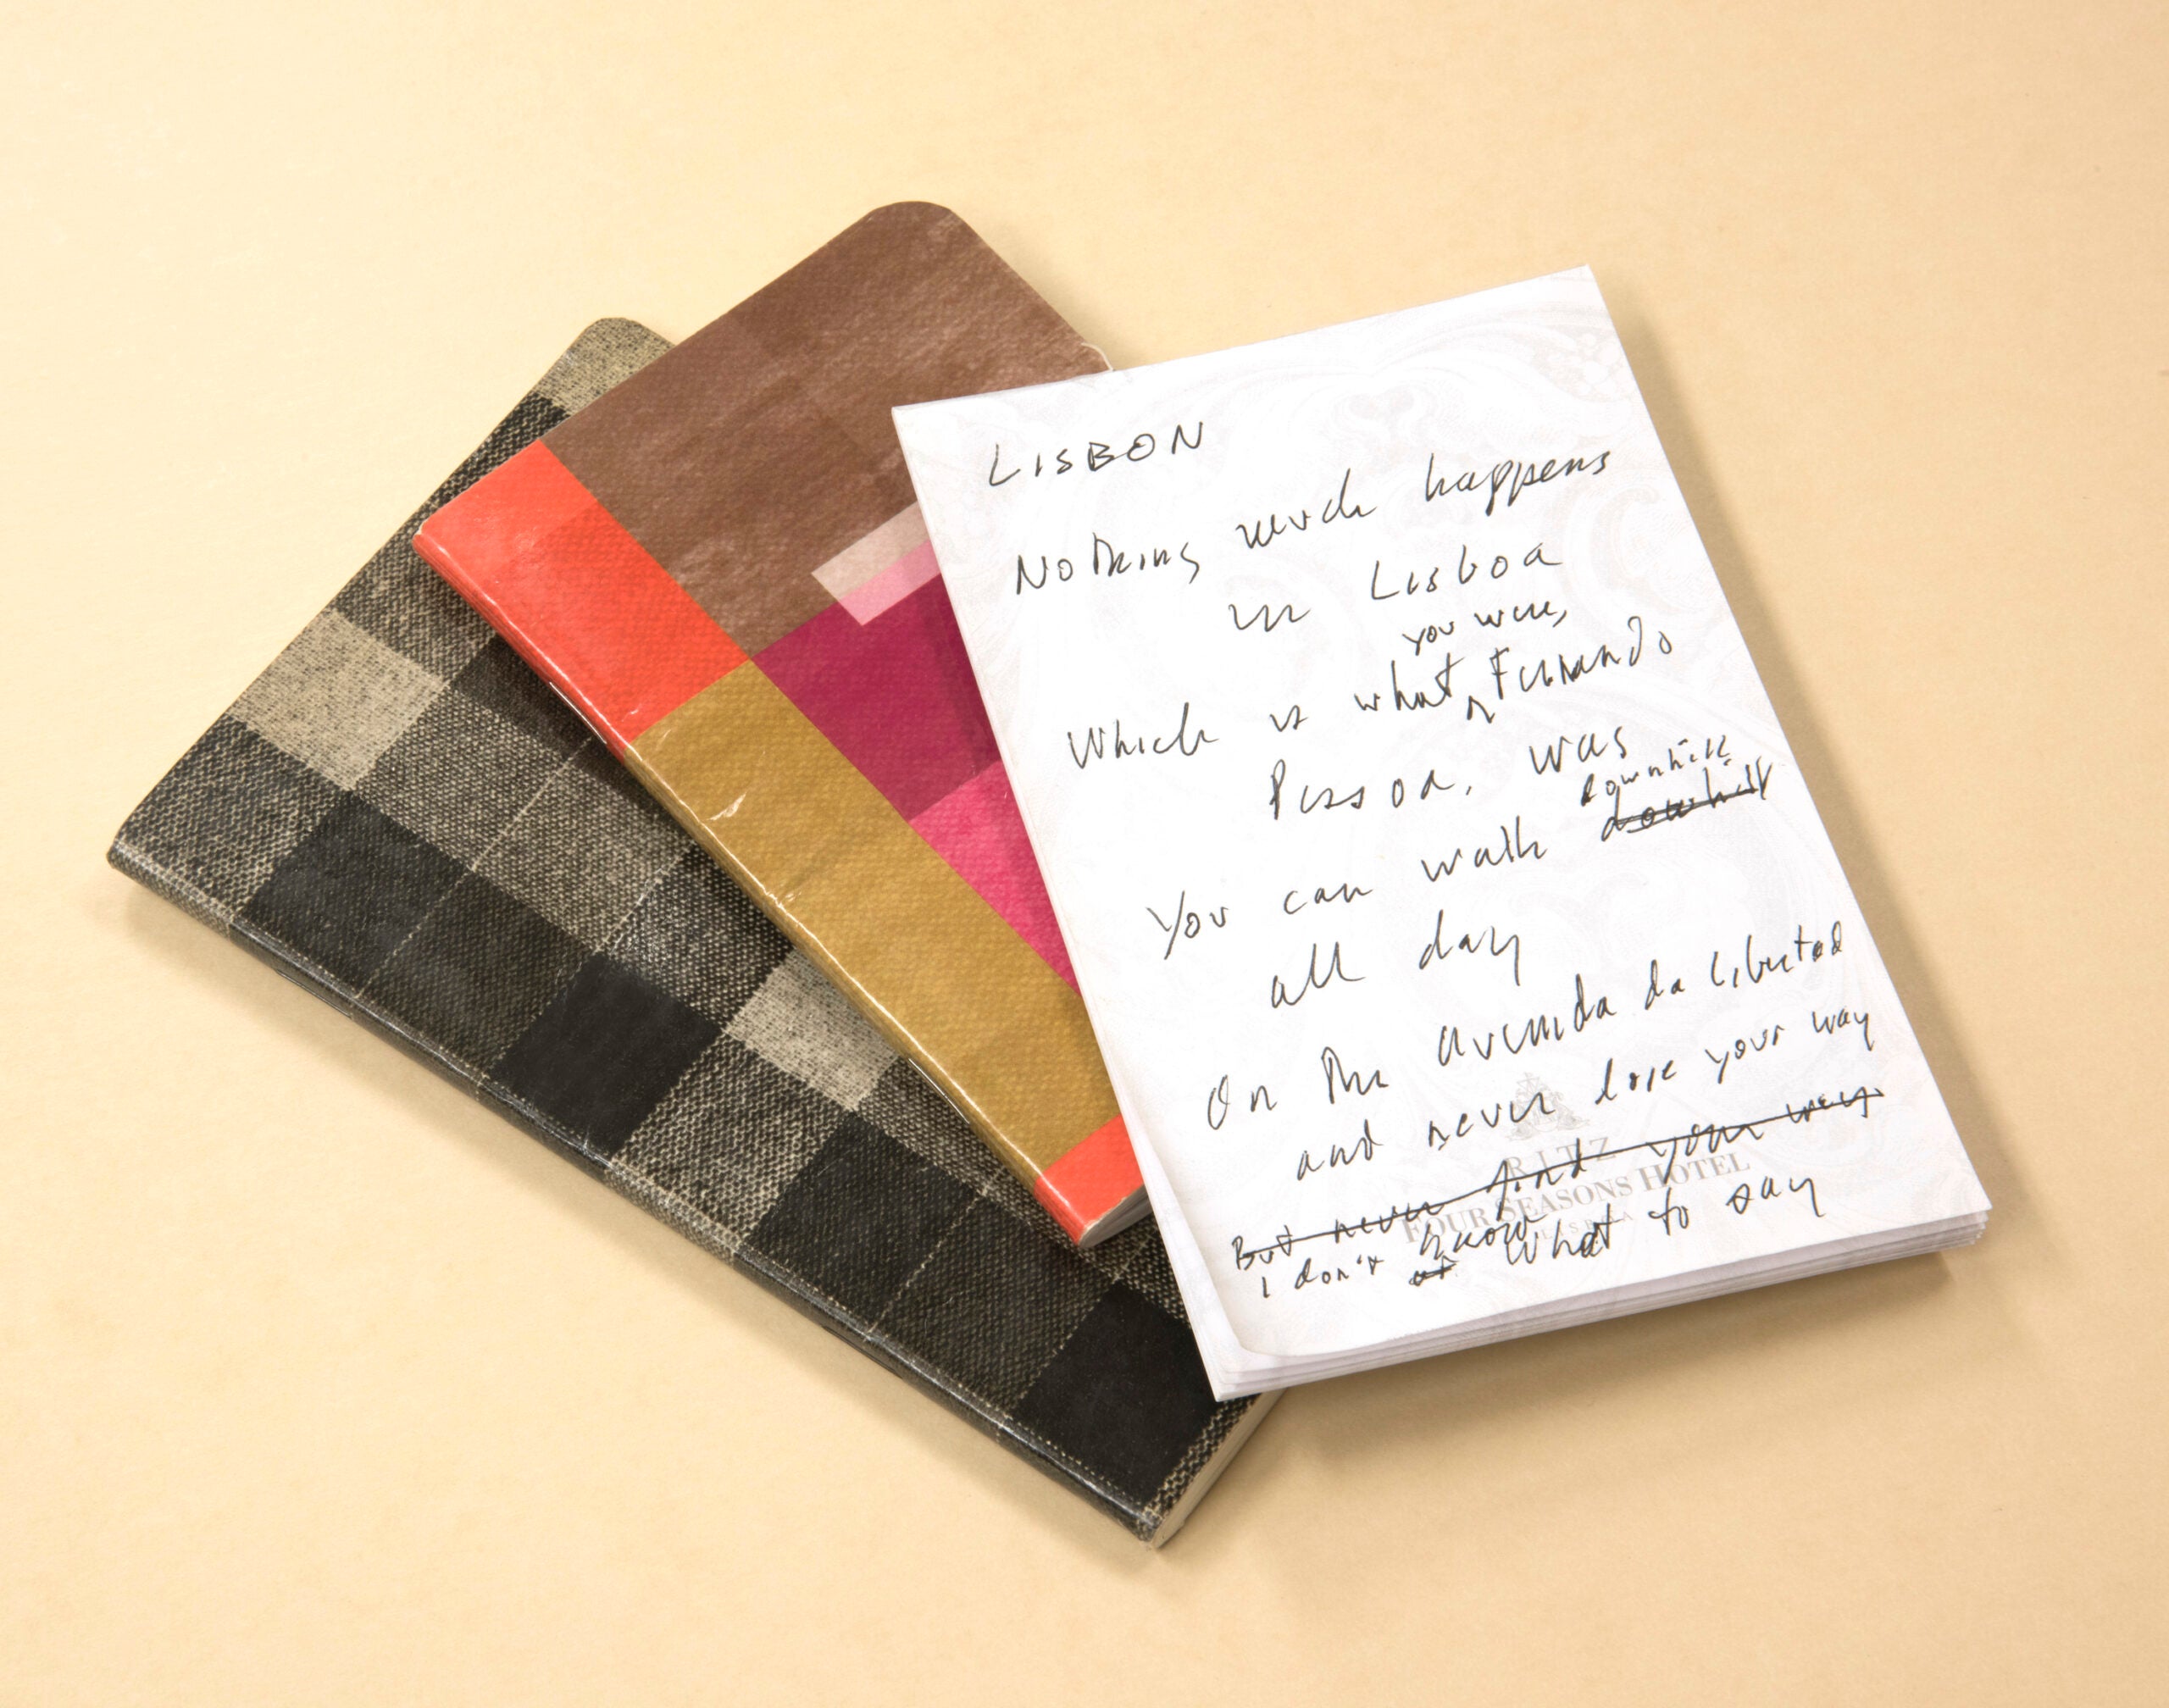 LISBON
Nothing much happens
in Lisboa
you were,
Which is what ^ Fernando
Pessoa, was
downhill
You can walk dowhill
all day
On the avenida da libertad
and never lose your way
But never find your way
I don't know what to say
RITZ
FOUR SEASONS HOTEL
LISBOA